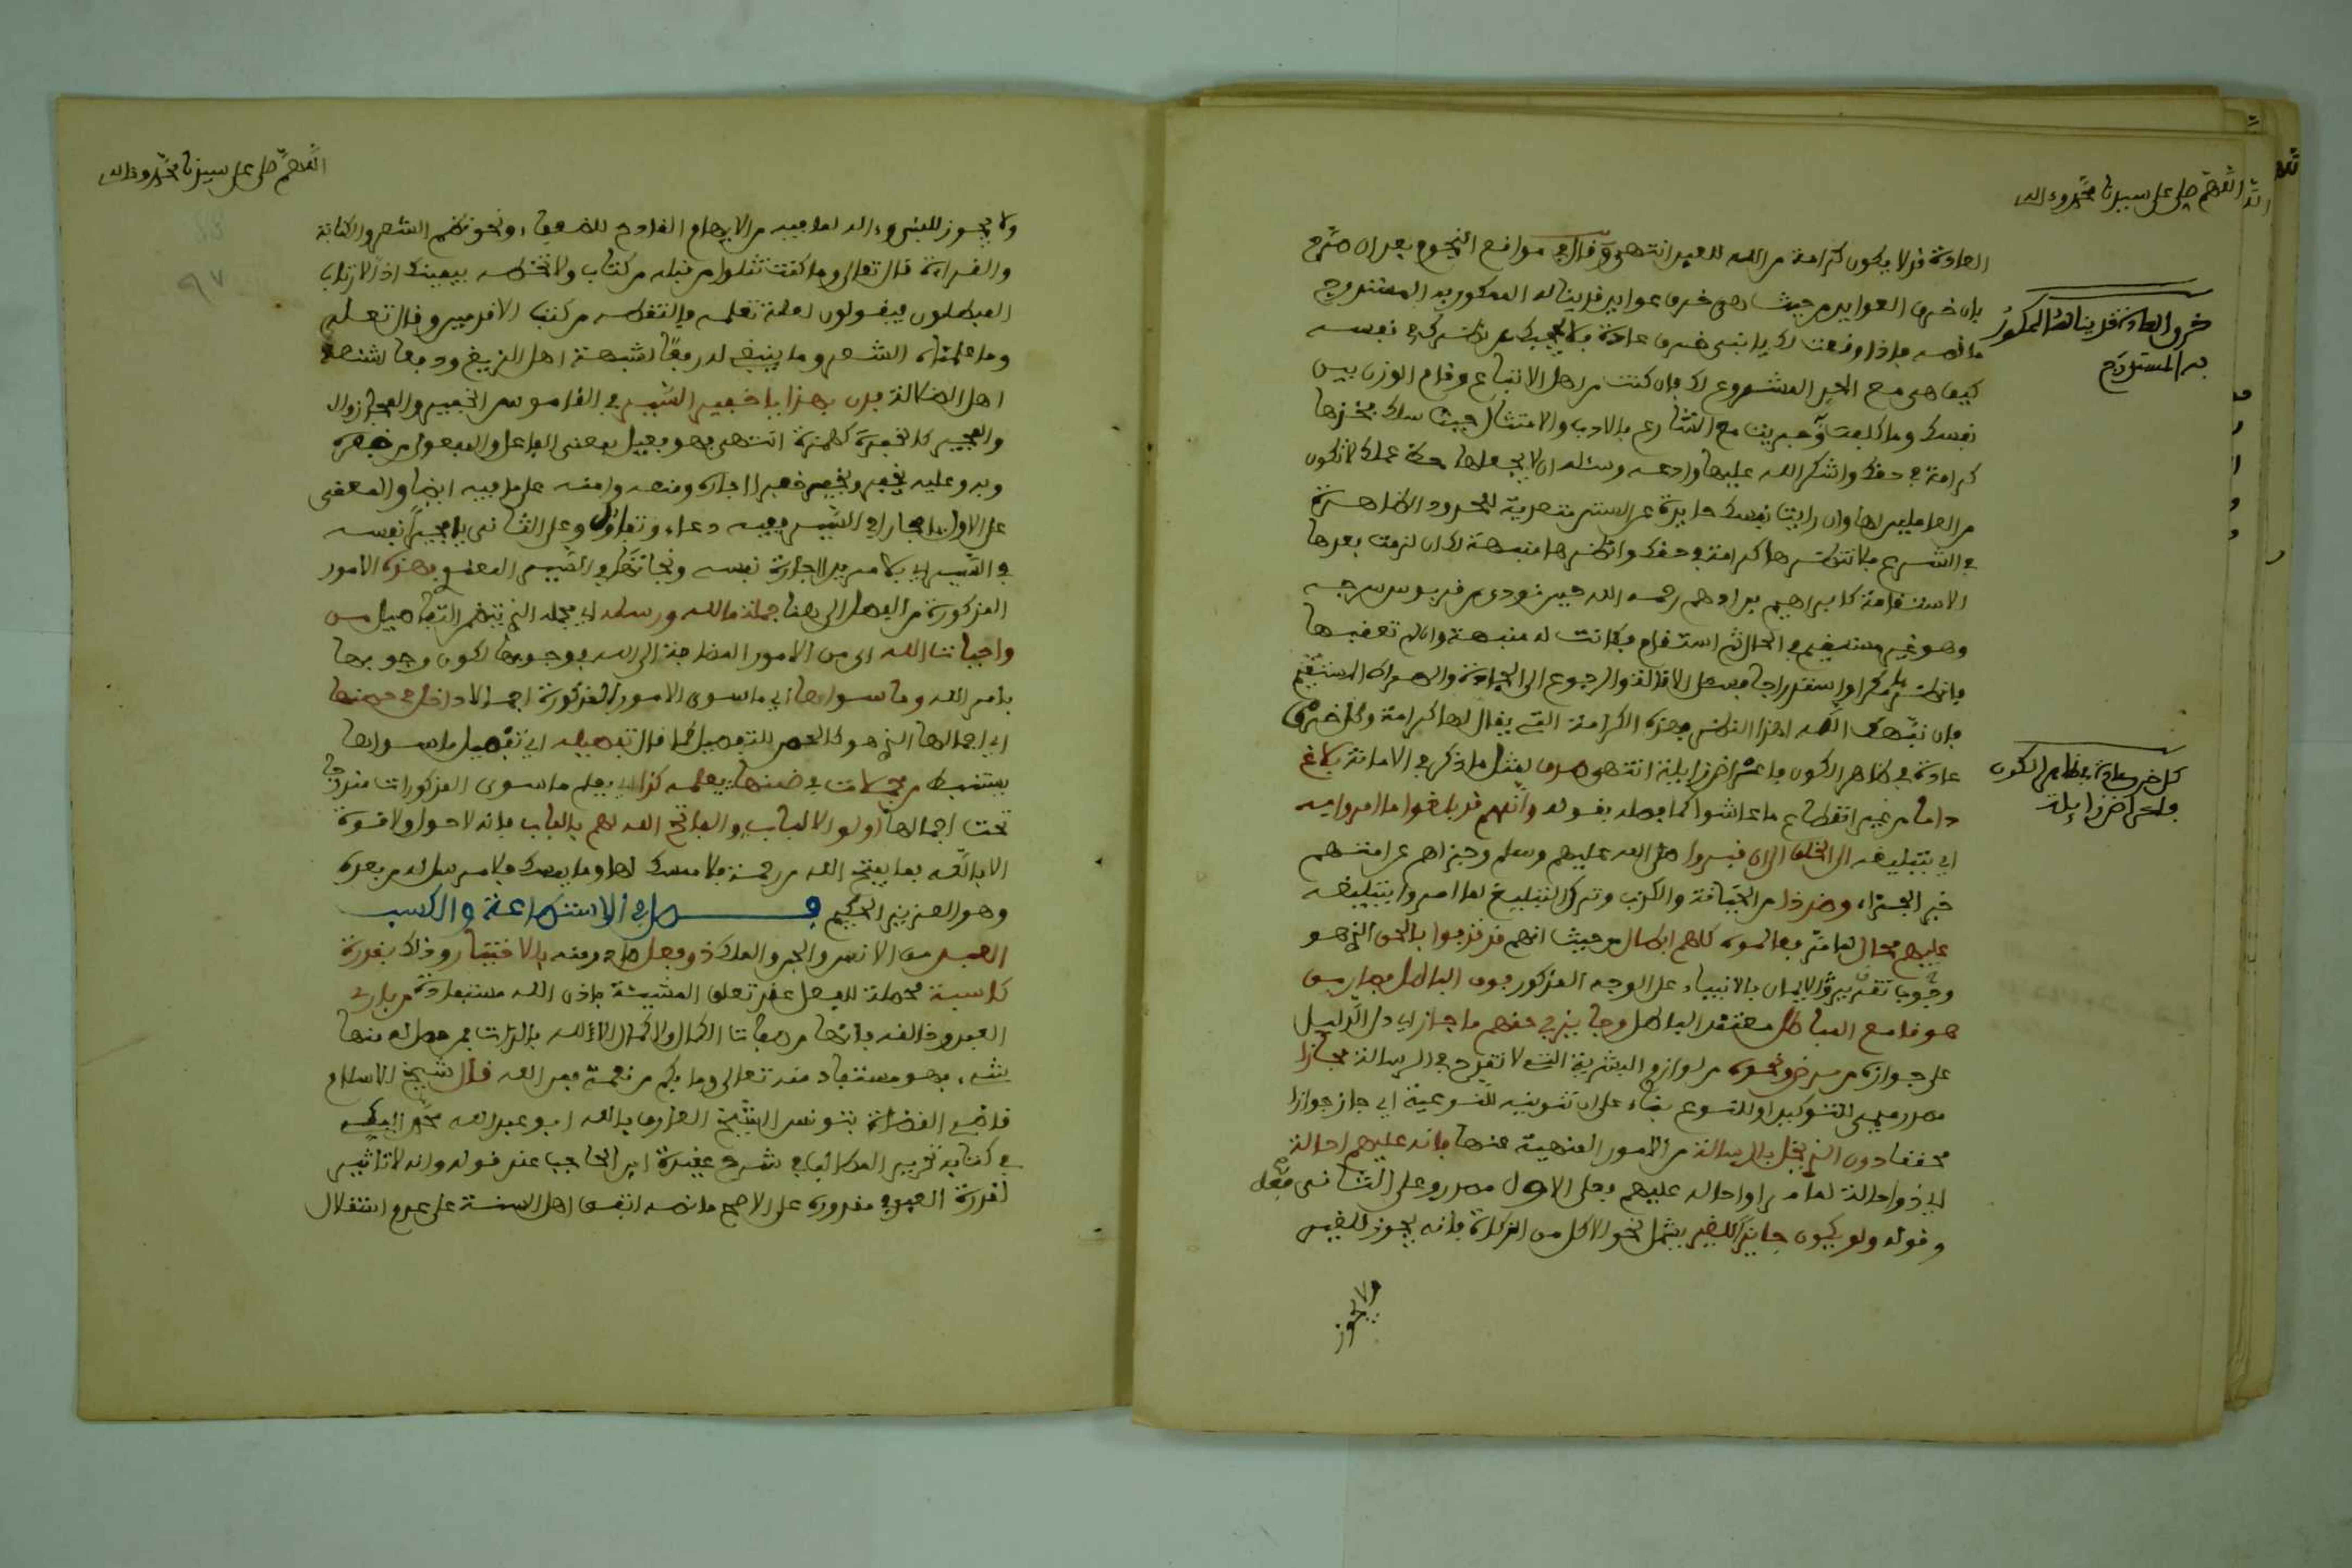 اللهم صل على سيدنا محمد وءاله
العادة قد لا يكون كرامة من الله للعبد انتهى وقال في مواقع النجوم بعد ان صرح
بان خرق العوايد من حيث هي خرق عوايد قد ينالها الممكور به المستدرج
ما نصه فاذا وقعت لك يا بني خرق عادة فلا تحجبك عن نظرك في نفسك
كيف هي مع الحد المشروع لك فان كنت من اهل الاتباع وقام الوزن بين
نفسك وما كلفت وجريت مع الشارع بالادب والامتثال حيث سلك فخذها
كرامة في حقك واشكر الله عليها وادعه وسئله ان لا يجعلها حظ عملك لا تكون
من العاملين لها وان رايت نفسك حايدة عن السنن متعدية للحدود الظاهرة
في الشرع فلا تنظرها كرامة في حقك وانظرها منبهة لك ان لزمت بعدها
الاستقامة كابراهيم بن ادهم رحمه الله حين نودي من قربوس سرجه
وهو غير مستقيم في الحال ثم استقام فكانت له منبهة وان لم تعقبها
فانظر مكرا واستدراجا فسل الاقالة والرجوع الى الجادة والصراط المستقيم
فان نبهك الله لهذا النظر فهذه الكرامة التي يقال لها كرامة وكل خرق
عادة في ظاهر الكون فاعراض زايلة انتهى صدق لمثل ما ذكر في الامانة بلاغ
دايما من غير انقطاع ما عاشوا كما فصله بقوله وانهم قد بلغوا ما امروا به
اي بتبليغه الى الخلق الى ان قبروا صلى الله عليهم وسلم وجزاهم عن امتهم
خير الجزاء وضد ذا من الخيانة والكذب وترك التبليغ لما امروا بتبليغه
عليهم محال لما مر فعالموه كلهم ابطال من حيث انهم قد فرموا بالحق الذي هو
وجوب تقرير الايمان بالانبياء على الوجه المذكور فوق الباطل فصار من
هو قامع الباطل معتقد الباطل وجايز في حقهم ما جاز اي دل الدليل
على جوازه من مرض ونحوه من لوازم البشرية التي لا تقدح في الرسالة مجازا
مصدر ميمي للتوكيد او للنوع بناء على ان تنوينه للنوعية اي جاز جوازا
محققا دون الذي يخل بالرسالة من الامور المنهية عنها فانه عليهم احالة
اي ذو احالة لما مر او احاله عليهم فعلى الاول مصدر وعلى الثاني فعل
وقوله ولو يكون جايزا للغير يشمل نحو الاكل من الزكاة فانه يجوز للغير
ولا يجوز
خرق العادة قد يناله الممكور
به المستدرج
كل خرق عادة في ظاهر الكون
فاعراض زايلة
اللهم صل على سيدنا محمد وءاله
٩٧
ولا يجوز للنبي وءاله لما فيه من الابهام القادح للضعيف ونحو نظم الشعر والكتابة
والقراءة قال تعالى وما كنت تتلوا من قبله من كتاب ولا تخطه بيمينك اذا لارتاب
المبطلون فيقولون لعله تعلمه فالتقطه من كتب الاقدمين وقال تعلى
وما علمناه الشعر وما ينبغي له رفعا لشبهة اهل الزيغ ودفعا لشنعة
اهل الضلالة فدن بهذا يا خفير النيير في القاموس الخفير المجار زوال
والمجير كالخفرة كهمزة انتهى فهو فعيل بمعنى الفاعل والمفعول من خفره
وبه وعليه يخفر ويخفر خفرا اجاره ومنعه وامنه على ما فيه ايضا والمعنى
على الاول يا مجارا في السير ففيه دعاء وتفاؤل وعلى الثاني يا مجيرا نفسه
في السير اي بلا مريد لاجارة نفسه ونجاتها في السير المعلم فهذه الامور
المذكورة من اليها الى هنا جملة ما لله ورسله اي مجمله الذي يتضمن التفاصيل من
واجبات الله اي من الامور المضاجة الى الله بوجوبها لكون وجوبها
بامر الله وما سواها اي ما سوى الامور المذكورة اجمالا داخل في ضمنها
اي اجمالها الذي هو كالحصر للتفصيل كما قال تفصيله اي تفصيل ما سواها
يستنبط من مجملات في ضمنها يعلمه كذا اي يعلم ما سوى المذكورات مندرجا
تحت اجمالها اولوا الالباب والفاتح الله لهم بالباب فانه لا حول ولا قوة
الا بالله فما يفتح الله من رحمة فلا ممسك لها وما يمسك فلا مرسل له من بعده
وهو العزيز الحكيم فصل في الاستطاعة والكسب
العبد من الانس والجن والملك ذو فعل صادر منه بالاختيار وذلك بقدرة
كاسبة محصلة للفعل عند تعلق المشيئة باذن الله مستفادة من بارئ
العبد وخالقه فانها من صفات الكمال ولا كمال الا لله بالذات فمن حصل له منها
شيء فهو مستفاد منه تعالى وما بكم من نعمة فمن الله قال شيخ الاسلام
قاضي القضاة بتونس الشيخ العارف بالله ابو عبد الله محمد البكي
في كتابه تحرير المطالب في شرح عقيدة ابن الحاجب عند قوله وانه لا تاثير
لقدرة العبد في مقدوره على الاصح ما نصه اتفق اهل السنة على عدم استقلال